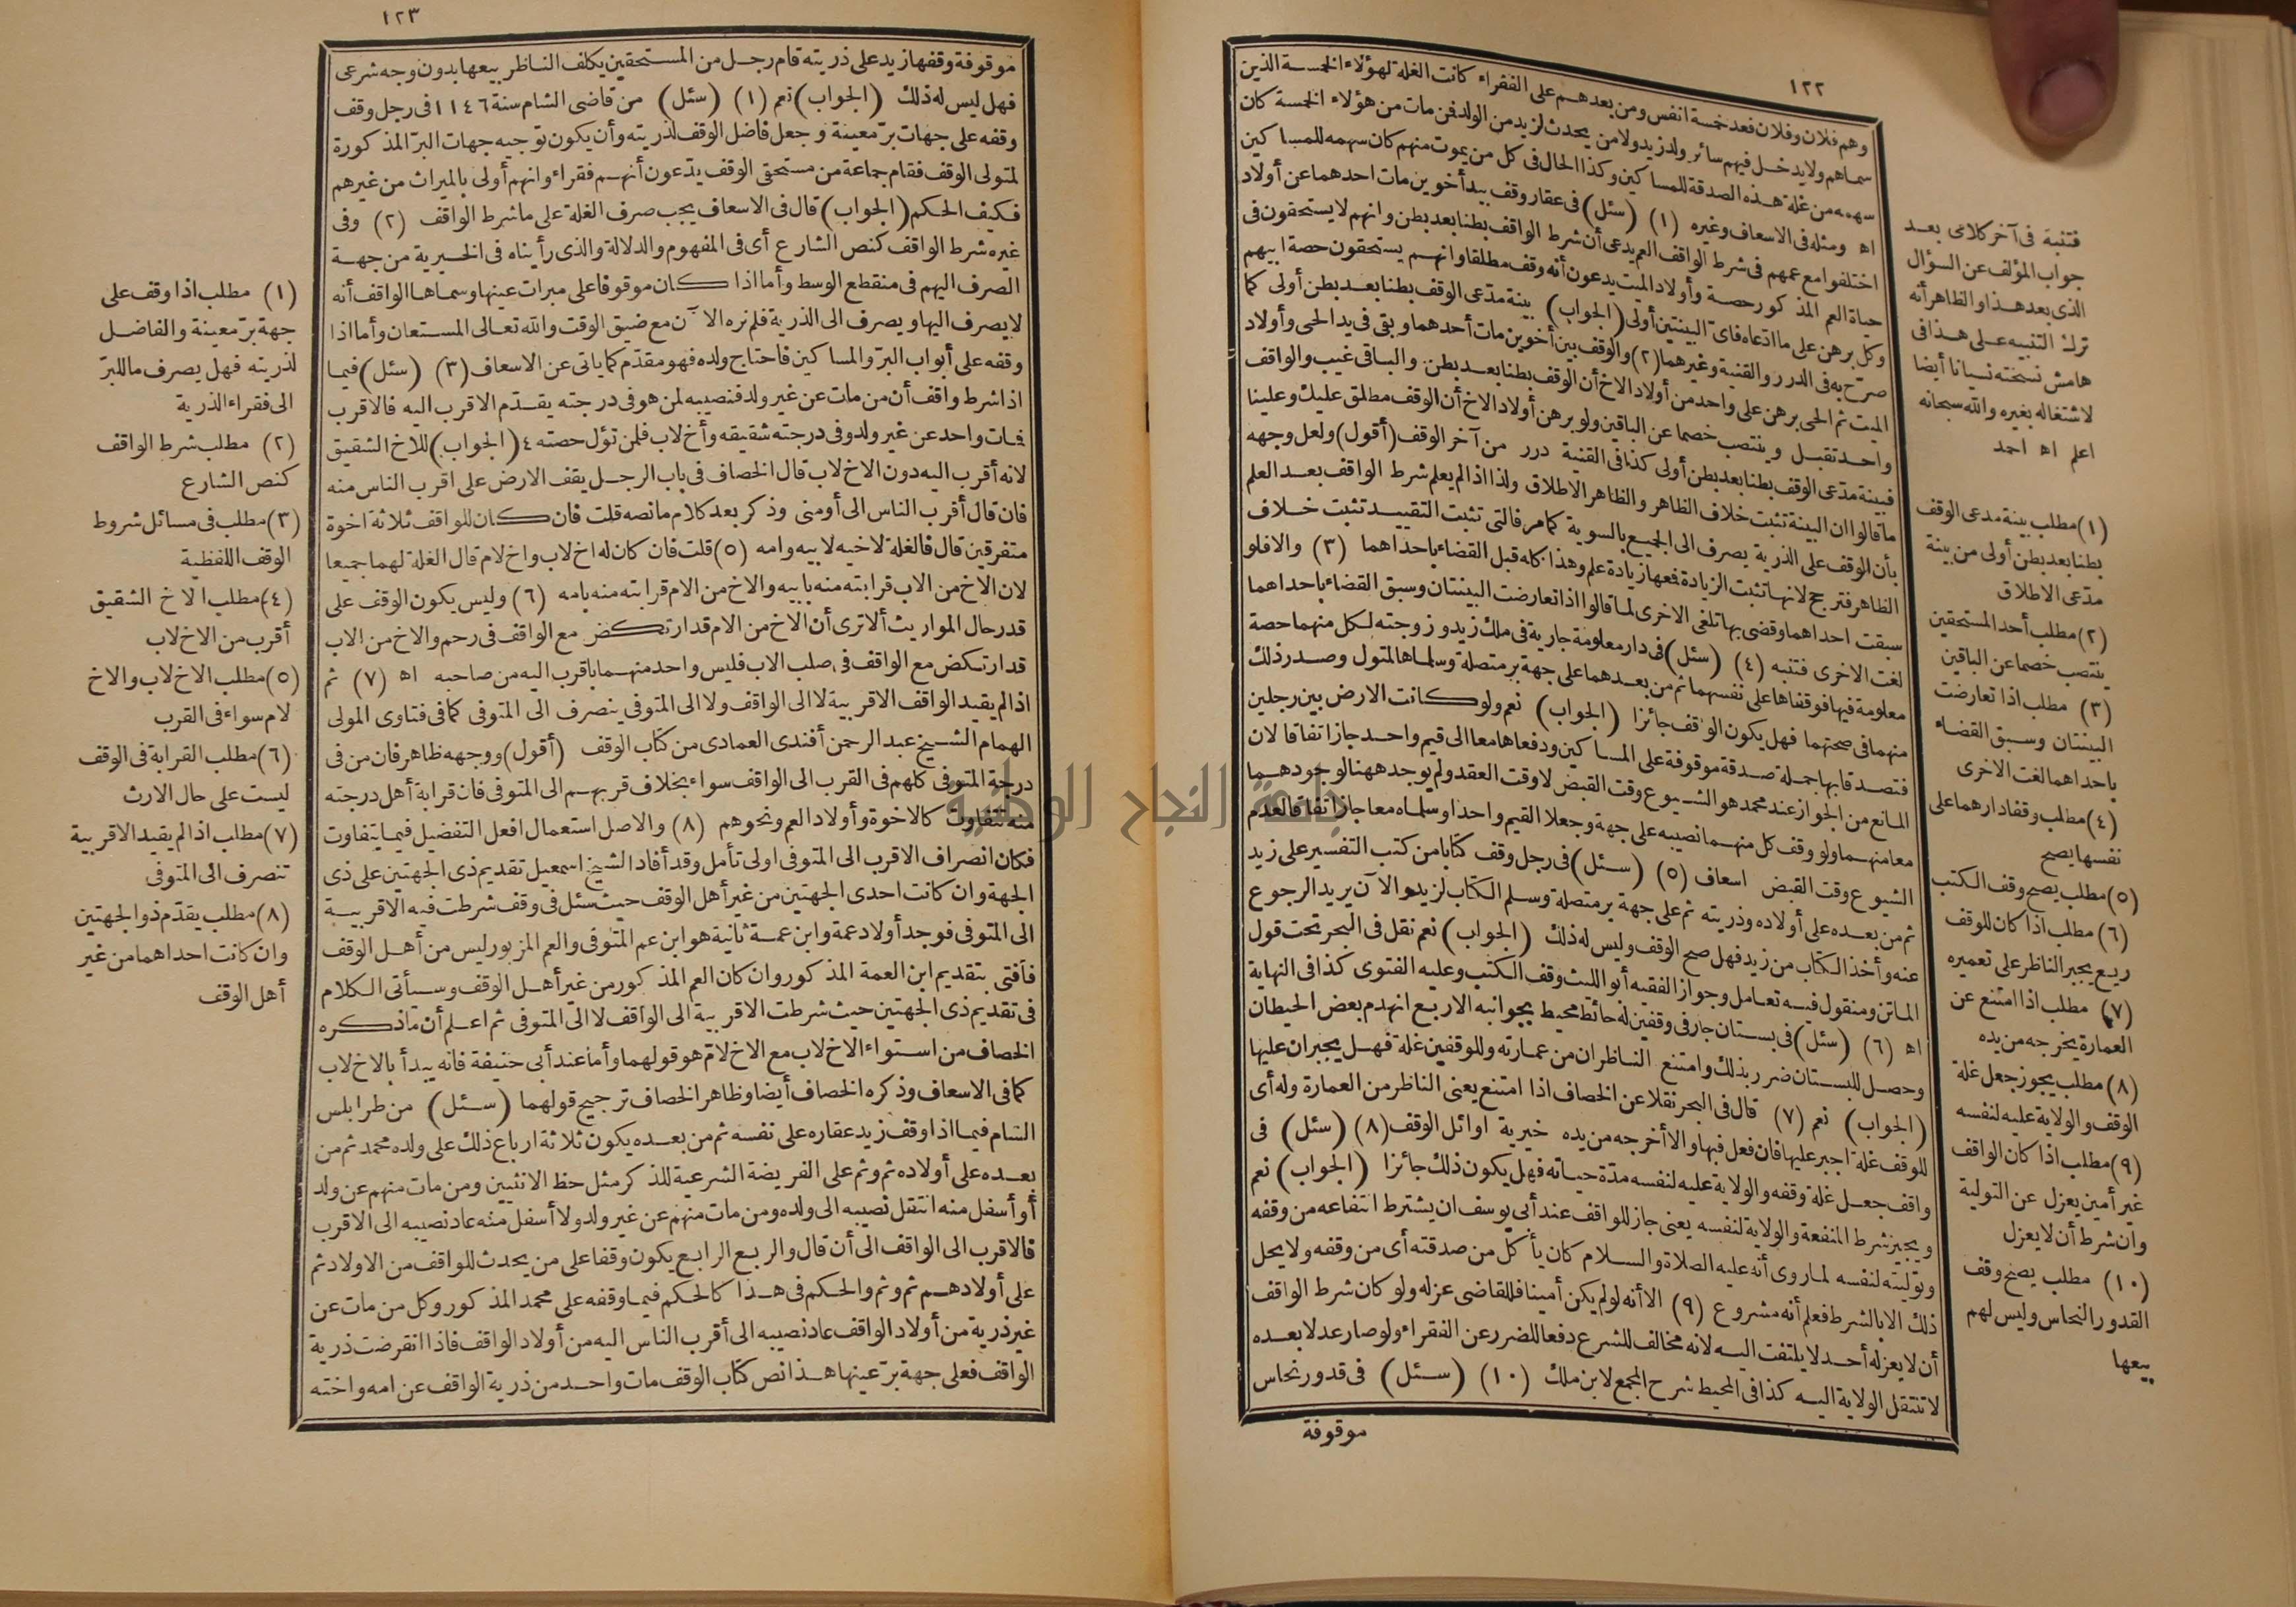 ١٢٢
وهم فلان وفلان فعد خمسة انفس ومن بعدهم على الفقراء كانت الغلة لهؤلاء الخمسة الذين
سماهم ولا يدخل فيهم سائر ولد زيد ولا من يحدث لزيد من الولد فمن مات من هؤلاء الخمسة كان
سهمه من غلة هذه الصدقة للمساكين وكذا الحال فى كل من يموت منهم كان سهمه للمساكين
اه ومثله فى الاسعاف وغيره (١) (سئل) فى عقار وقف بيد أخوين مات احدهما عن أولاد
اختلفوا مع عمهم فى شرط الواقف العم يدعى أن شرط الواقف بطنا بعد بطن وانهم لا يستحقون فى
حياة العم المذكور حصة وأولاد الميت يدعون أنه وقف مطلقا وانهم يستحقون حصة ابيهم
وكل برهن على ما ادعاه فاى البينتين أولى (الجواب) بينة مدّعى الوقف بطنا بعد بطن أولى كما
صرّح به فى الدرر والقنية وغيرهما (٢) والوقف بين أخوين مات أحدهما وبقى فى يد الحى وأولاد
الميت ثم الحى برهن على واحد من أولاد الاخ أن الوقف بطنا بعد بطن والباقى غيب والواقف
واحد تقبل وينتصب خصما عن الباقين ولو برهن أولاد الاخ أن الوقف مطلق عليك وعلينا
فبينة مدّعى الوقف بطنا بعد بطن أولى كذا فى القنية درر من آخر الوقف (أقول) ولعل وجهه
ما قالوا ان البينة تثبت خلاف الظاهر والظاهر الاطلاق ولذا اذا لم يعلم شرط الواقف بعد العلم
بأن الوقف على الذرية يصرف الى الجميع بالسوية كما مر فالتى تثبت التقييد تثبت خلاف
الظاهر فترجح لانها تثبت الزيادة فمعها زيادة علم وهذا كله قبل القضاء باحداهما (٣) والا فلو
سبقت احداهما وقضى بها تلغى الاخرى لما قالوا اذا تعارضت البينتان وسبق القضاء باحداهما
لغت الاخرى فتنبه (٤) (سئل) فى دار معلومة جارية فى ملك زيد وزوجته لكل منهما حصة
معلومة فيها فوقفاها على نفسهما ثم من بعدهما على جهة بر متصلة وسلماها لمتول وصدر ذلك
منهما فى صحتهما فهل يكون الوقف جائزا (الجواب) نعم ولو كانت الارض بين رجلين
فتصدقا بها جملة صدقة موقوفة على المساكين ودفعاها معا الى قيم واحد جاز اتفاقا لان
المانع من الجواز عند محمد هو الشيوع وقت القبض لا وقت العقد ولم يوجد ههنا لوجودهما
معا منهما ولو وقف كل منهما نصيبه على جهة وجعلا القيم واحدا وسلماه معا جاز اتفاقا لعدم
الشيوع وقت القبض اسعاف (٥) (سئل) فى رجل وقف كتابا من كتب التفسير على زيد
ثم من بعده على أولاده وذريته ثم على جهة بر متصلة وسلم الكتاب لزيد والآن يريد الرجوع
عنه وأخذ الكتاب من زيد فهل صح الوقف وليس له ذلك (الجواب) نعم نقل فى البحر تحت قول
الماتن ومنقول فيه تعامل وجواز الفقيه أبو الليث وقف الكتب وعليه الفتوى كذا فى النهاية
اه (٦) (سئل) فى بستان جار فى وقفين له حائط محيط بجوانبه الاربع انهدم بعض الحيطان
وحصل للبستان ضرر بذلك وامتنع الناظران من عمارته وللوقفين غلة فهل يجبران عليها
(الجواب) نعم (٧) قال فى البحر نقلا عن الخصاف اذا امتنع يعنى الناظر من العمارة وله أى
للوقف غلة اجبر عليها فان فعل فبها والا أخرجه من يده خيرية اوائل الوقف (٨) (سئل) فى
واقف جعل غلة وقفه والولاية عليه لنفسه مدّة حياته فهل يكون ذلك جائزا (الجواب) نعم
ويجيز شرط المنفعة والولاية لنفسه يعنى جاز للواقف عند أبى يوسف ان يشترط انتفاعه من وقفه
وتوليته لنفسه لما روى أنه عليه الصلاة والسلام كان يأكل من صدقته أى من وقفه ولا يحل
ذلك الا بالشرط فعلم أنه مشروع (٩) الا أنه لو لم يكن أمينا فللقاضى عزله ولو كان شرط الواقف
أن لا يعزله أحد لا يلتفت اليه لانه مخالف للشرع دفعا للضرر عن الفقراء ولو صار عدلا بعده
لا تنتقل الولاية اليه كذا فى المحيط شرح المجمع لابن ملك (١٠) (سئل) فى قدور نحاس
موقوفة
فتنبه فى آخر كلامى بعد
جواب المؤلف عن السؤال
الذى بعد هذا والظاهر أنه
ترك التنبيه على هذا فى
هامش نسخته نسيانا أيضا
لاشتغاله بغيره والله سبحانه
اعلم اه احمد
(١) مطلب بينة مدعى الوقف
بطنا بعد بطن أولى من بينة
مدّعى الاطلاق
(٢) مطلب أحد المستحقين
ينتصب خصما عن الباقين
(٣) مطلب اذا تعارضت
البينتان وسبق القضاء
باحداهما لغت الاخرى
(٤) مطلب وقفا دارهما على
نفسهما يصح
(٥) مطلب يصح وقف الكتب
(٦) مطلب اذا كان للوقف
ريع يجبر الناظر على تعميره
(٧) مطلب اذا امتنع عن
العمارة يخرجه من يده
(٨) مطلب يجوز جعل غلة
الوقف والولاية عليه لنفسه
(٩) مطلب اذا كان الواقف
غير أمين يعزل عن التولية
وان شرط أن لا يعزل
(١٠) مطلب يصح وقف
القدور النحاس وليس لهم
بيعها
١٢٣
موقوفة وقفها زيد على ذريته قام رجل من المستحقين يكلف الناظر بيعها بدون وجه شرعى
فهل ليس له ذلك (الجواب) نعم (١) (سئل) من قاضى الشام سنة ١١٤٦ فى رجل وقف
وقفه على جهات برّ معينة وجعل فاضل الوقف لذريته وأن يكون توجيه جهات البرّ المذكورة
لمتولى الوقف فقام جماعة من مستحقى الوقف يدّعون أنهم فقراء وانهم أولى بالميراث من غيرهم
فكيف الحكم (الجواب) قال فى الاسعاف يجب صرف الغلة على ما شرط الواقف (٢) وفى
غيره شرط الواقف كنص الشارع أى فى المفهوم والدلالة والذى رأيناه فى الخيرية من جهة
الصرف اليهم فى منقطع الوسط وأما اذا كان موقوفا على مبرات عينها وسماها الواقف أنه
لا يصرف اليها ويصرف الى الذرية فلم نره الآن مع ضيق الوقت والله تعالى المستعان وأما اذا
وقفه على أبواب البرّ والمساكين فاحتاج ولده فهو مقدّم كما ياتى عن الاسعاف (٣) (سئل) فيما
اذا شرط واقف أن من مات عن غير ولد فنصيبه لمن هو فى درجته يقدّم الاقرب اليه فالاقرب
فمات واحد عن غير ولد وفى درجته شقيقه وأخ لاب فلمن تؤل حصته ٤ (الجواب) للاخ الشقيق
لانه أقرب اليه دون الاخ لاب قال الخصاف فى باب الرجل يقف الارض على اقرب الناس منه
فان قال أقرب الناس الى أو منى وذكر بعد كلام ما نصه قلت فان كان للواقف ثلاثة اخوة
متفرقين قال فالغلة لاخيه لابيه وامه (٥) قلت فان كان له اخ لاب واخ لام قال الغلة لهما جميعا
لان الاخ من الاب قرابته منه بابيه والاخ من الام قرابته منه بامه (٦) وليس يكون الوقف على
قدر حال المواريث ألا ترى أن الاخ من الام قد ارتكض مع الواقف فى رحم والاخ من الاب
قد ارتكض مع الواقف فى صلب الاب فليس واحد منهما باقرب اليه من صاحبه اه (٧) ثم
اذا لم يقيد الواقف الاقربية لا الى الواقف ولا الى المتوفى ينصرف الى المتوفى كما فى فتاوى المولى
الهمام الشيخ عبد الرحمن أفندى العمادى من كتاب الوقف (أقول) ووجهه ظاهر فان من فى
درجة المتوفى كلهم فى القرب الى الواقف سواء بخلاف قربهم الى المتوفى فان قرابة أهل درجته
منه تتفاوت كالاخوة وأولاد العم ونحوهم (٨) والاصل استعمال افعل التفضيل فيما يتفاوت
فكان انصراف الاقرب الى المتوفى اولى تأمل وقد أفاد الشيخ اسمعيل تقديم ذى الجهتين على ذى
الجهة وان كانت احدى الجهتين من غير أهل الوقف حيث سئل فى وقف شرطت فيه الاقربية
الى المتوفى فوجد أولاد عمة وابن عمة ثانية هو ابن عم المتوفى والعم المزبور ليس من أهل الوقف
فأفتى بتقديم ابن العمة المذكور وان كان العم المذكور من غير أهل الوقف وسيأتى الكلام
فى تقديم ذى الجهتين حيث شرطت الاقربية الى الواقف لا الى المتوفى ثم اعلم أن ما ذكره
الخصاف من استواء الاخ لاب مع الاخ لام هو قولهما وأما عند أبى حنيفة فانه يبدأ بالاخ لاب
كما فى الاسعاف وذكره الخصاف أيضا وظاهر الخصاف ترجيح قولهما (سئل) من طرابلس
الشام فيما اذا وقف زيد عقاره على نفسه ثم من بعده يكون ثلاثة ارباع ذلك على ولده محمد ثم من
بعده على أولاده ثم وثم على الفريضة الشرعية للذكر مثل حظ الانثيين ومن مات منهم عن ولد
أو أسفل منه انتقل نصيبه الى ولده ومن مات منهم عن غير ولد ولا أسفل منه عاد نصيبه الى الاقرب
فالاقرب الى الواقف الى أن قال والربع الرابع يكون وقفا على من يحدث للواقف من الاولاد ثم
على أولادهم ثم وثم والحكم فى هذا كالحكم فيما وقفه على محمد المذكور وكل من مات عن
غير ذرية من أولاد الواقف عاد نصيبه الى أقرب الناس اليه من أولاد الواقف فاذا انقرضت ذرية
الواقف فعلى جهة برّ عينها هذا نص كتاب الوقف مات واحد من ذرية الواقف عن امه واخته
(١) مطلب اذا وقف على
جهة برّ معينة والفاضل
لذريته فهل يصرف ما للبرّ
الى فقراء الذرية
(٢) مطلب شرط الواقف
كنص الشارع
(٣) مطلب فى مسائل شروط
الوقف اللفظية
(٤) مطلب الاخ الشقيق
أقرب من الاخ لاب
(٥) مطلب الاخ لاب والاخ
لام سواء فى القرب
(٦) مطلب القرابة فى الوقف
ليست على حال الارث
(٧) مطلب اذا لم يقيد الاقربية
تنصرف الى المتوفى
(٨) مطلب يقدّم ذو الجهتين
وان كانت احداهما من غير
أهل الوقف
جامعة النجاح الوطنية